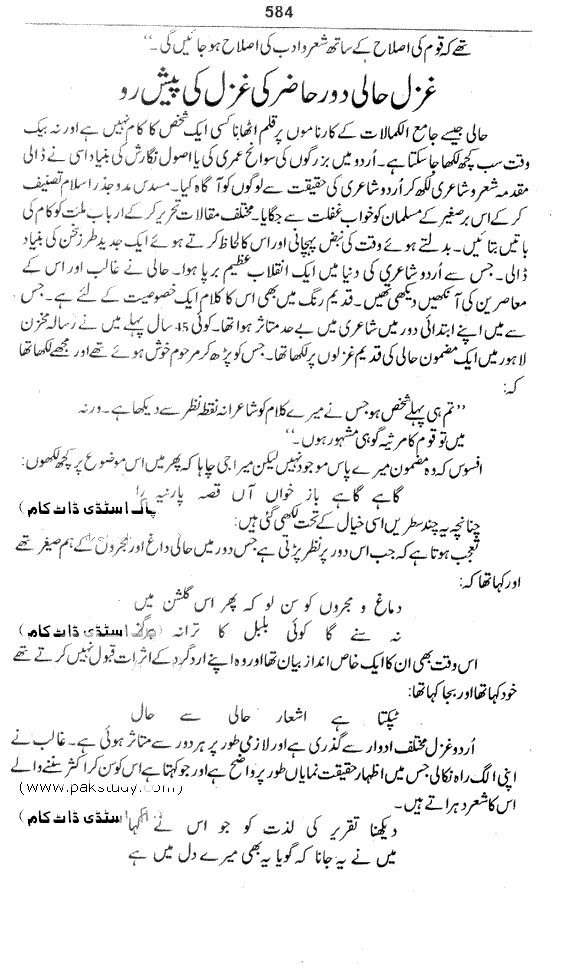 584
تھے کہ قوم کی اصلاح کے ساتھ شعر و ادب کی اصلاح ہو جائیں گی۔"
غزل حالی دور حاضر کی غزل کی پیش رو
حالی جیسے جامع الکمالات کے کارناموں پر قلم اٹھانا کسی ایک شخص کا کام نہیں ہے اور نہ بیک
وقت سب کچھ لکھا جا سکتا ہے۔ اُردو میں بزرگوں کی سوانح عمری کی با اصول نگارش کی بنیاد اسی نے ڈالی
مقدمہ شعر و شاعری لکھ کر اُردو شاعری کی حقیقت سے لوگوں کو آگاہ کیا۔ مسدس مدوجذر اسلام تصنیف
کر کے اس برصغیر کے مسلمان کو خواب غفلت سے جگایا۔ مختلف مقالات تحریر کر کے ارباب ملت کو کام کی
باتیں بتائیں۔ بدلتے ہوئے وقت کی نبض پہچانی اور اس کا لحاظ کرتے ہوئے ایک جدید طرز سخن کی بنیاد
ڈالی۔ جس سے اُردو شاعری کی دنیا میں ایک انقلاب عظیم برپا ہوا۔ حالی نے غالب اور اس کے
معاصرین کی آنکھیں دیکھی تھیں۔ قدیم رنگ میں بھی اس کا کلام ایک خصوصیت کے لئے ہے۔ جس
سے میں اپنے ابتدائی دور میں شاعری میں بے حد متاثر ہوا تھا۔ کوئی 45 سال پہلے میں نے رسالہ مخزن
لاہور میں ایک مضمون حالی کی قدیم غزلوں پر لکھا تھا۔ جس کو پڑھ کر مرحوم خوش ہوئے تھے اور مجھے لکھا تھا
کہ:
"تم ہی پہلے شخص ہو جس نے میرے کلام کو شاعرانہ نقطہ نظر سے دیکھا ہے۔ ورنہ
میں تو قوم کا مرثیہ گو ہی مشہور ہوں۔"
افسوس کہ وہ مضمون میرے پاس موجود نہیں لیکن میرا جی چاہا کہ پھر میں اس موضوع پر کچھ لکھوں:
گاہے گاہے باز خواں آں قصہ پارنیہ را
پاک اسٹڈی ڈاٹ کام )
چنانچہ یہ چند سطریں اسی خیال کے تحت لکھی گئی ہیں:
تعجب ہوتا ہے کہ جب اس دور پر نظر پڑتی ہے جس دور میں حالی داغ اور مجروں کے ہم صغیر تھے
اور کہا تھا کہ:
دماغ و مجروں کو سن لو کہ پھر اس گلشن میں
نہ سنے گا کوئی بلبل کا ترانہ ہرگز
اسٹڈی ڈاٹ کام )
اس وقت بھی ان کا ایک خاص انداز بیان تھا اور وہ اپنے ارد گرد کے اثرات قبول نہیں کرتے تھے
خود کہا تھا اور بجا کہا تھا:
ٹپکتا ہے اشعار حالی سے حال
اُردو غزل مختلف ادوار سے گذری ہے اور لازمی طور پر ہر دور سے متاثر ہوئی ہے۔ غالب نے
اپنی الگ راہ نکالی جس میں اظہار حقیقت نمایاں طور پر واضح ہے اور جو کہتا ہے اس کو سن کر اکثر سننے والے
(www.pakstudy.com)
اس کا شعر دہراتے ہیں۔
دیکھنا تقریر کی لذت کو جو اس نے کہا
اسٹڈی ڈاٹ کام )
میں نے یہ جانا کہ گویا یہ بھی میرے دل میں ہے